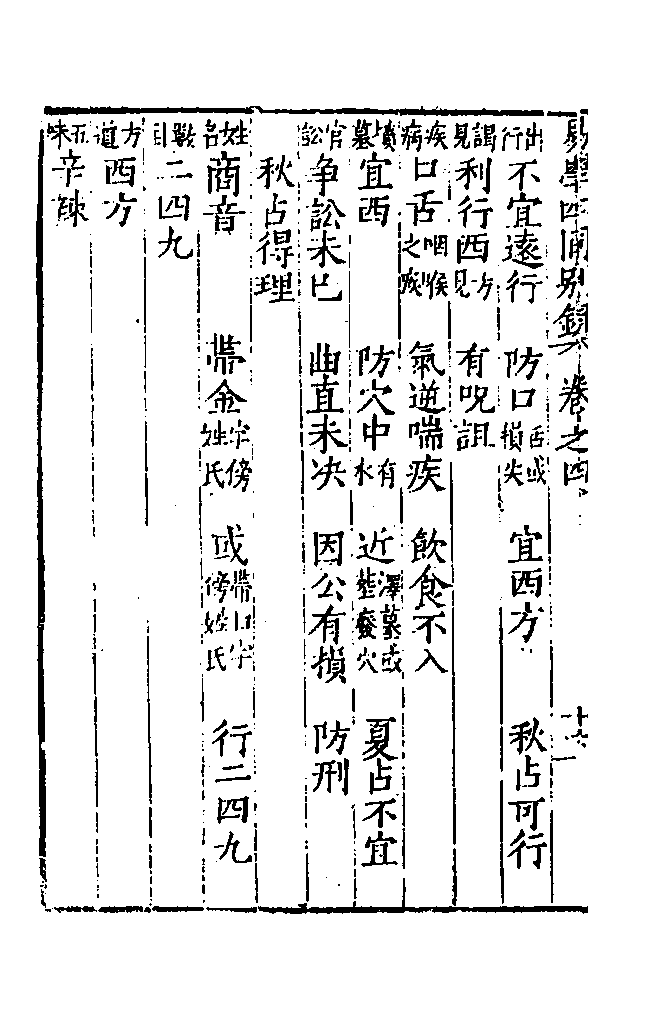 易學四同別錄 卷之四 十六
出行 不宜遠行 防口舌或損失 宜西方 秋占可行
謁見 利行西方見 有呪詛
疾病 口舌咽喉之疾 氣逆喘疾 飲食不入
墳墓 宜西 防穴中有水 近澤墓或葬廢穴 夏占不宜
官訟 爭訟未已 曲直未決 因公有損 防刑
秋占得理
姓名 商音 帶金字傍姓氏 或帶口字傍姓氏 行二四九
數目 二四九
方道 西方
五味 辛辣